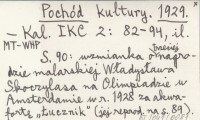 Pochód kultury. 1929.
– Kal. IKC 2: 82-94, il.
MT-WHP
S. 90: wzmianka o nagro-
trzeciej
dzie malarskiej Władysława
Skoczylasa na Olimpiadzie w
Amsterdamie w r. 1928 za akwa-
fortę "Łucznik" (jej reprod. na s. 89).